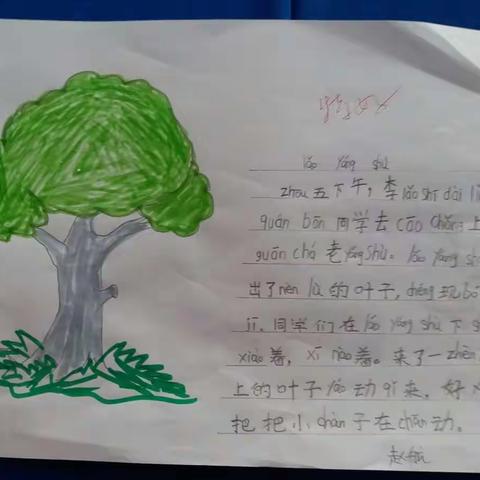 lǎo yáng shù
zhōu 五下午，李 lǎo shī dài
quán bān 同学去 cāo chǎng 上
guān chá 老 yáng shù。lǎo yáng
出了 nèn lǜ 的叶子，chéng 现
jī，同学们在 lǎo yáng shù 下
xiào 着，xī nào 着。来了一 zhèn
上的叶子 yáo 动 qǐ 来，好
把把小 shàn 子在 shān 动。
赵航